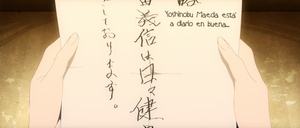 Yoshinobu Maeda está
a diario en buena...
田義信は日々健
しております。